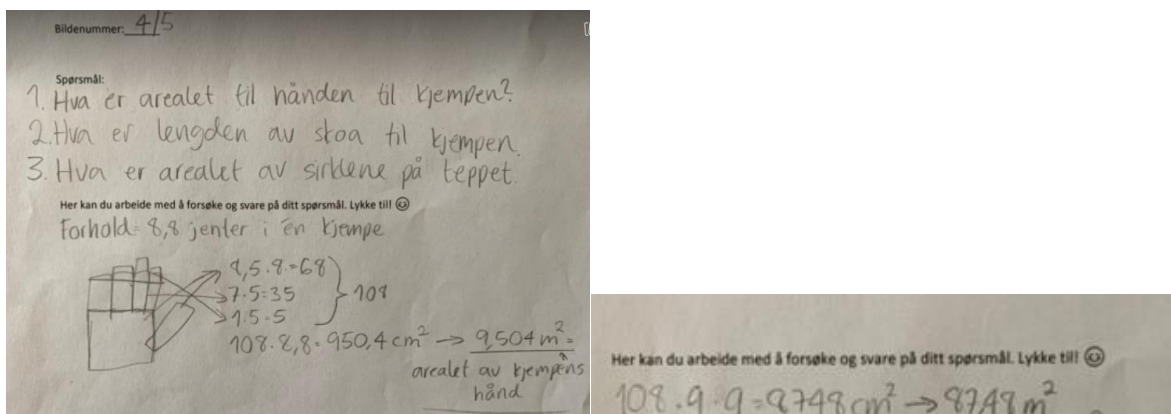 Bildenummer: 4/5
Spørsmål:
1. Hva er arealet til hånden til kjempen?
2. Hva er lengden av skoa til kjempen.
3. Hva er arealet av sirklene på teppet.
Her kan du arbeide med å forsøke og svare på ditt spørsmål. Lykke til! ☺
Forhold: 8,8 jenter i én kjempe
8,5·8=68
7·5=35
1·5=5
108
108·8,8=950,4 cm² → 9,504 m² =
arealet av kjempens
hånd
Her kan du arbeide med å forsøke og svare på ditt spørsmål. Lykke til! ☺
108·9·9=8748 cm² → 87,48 m²